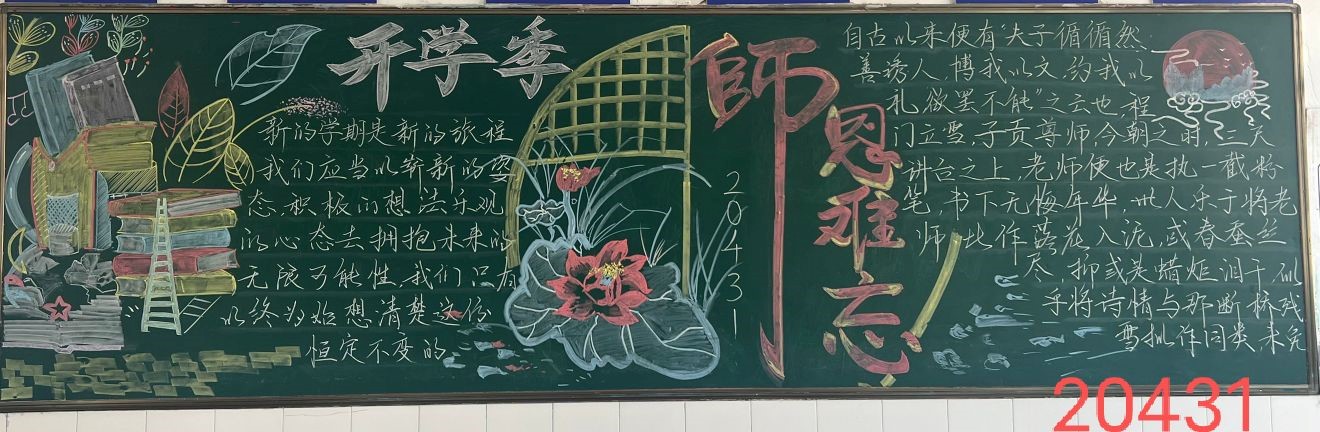 开学季
新的学期是新的旅程
我们应当以崭新的姿
态,积极的想法乐观
的心态去拥抱未来的
无限可能性,我们只有
以终为始想清楚这份
恒定不变的
20431
師恩难忘
自古以来便有"夫子循循然
善诱人,博我以文,约我以
礼欲罢不能"之云也,程
门立雪,子贡尊师,今朝之时,三尺
讲台之上,老师便也是执一截粉
笔,书下无悔年华,世人乐于将老
师比作落花入泥,或春蚕丝
尽,抑或是蜡炬泪干,似
乎将诗情与那断桥残
雪拟作同类,未免
20431